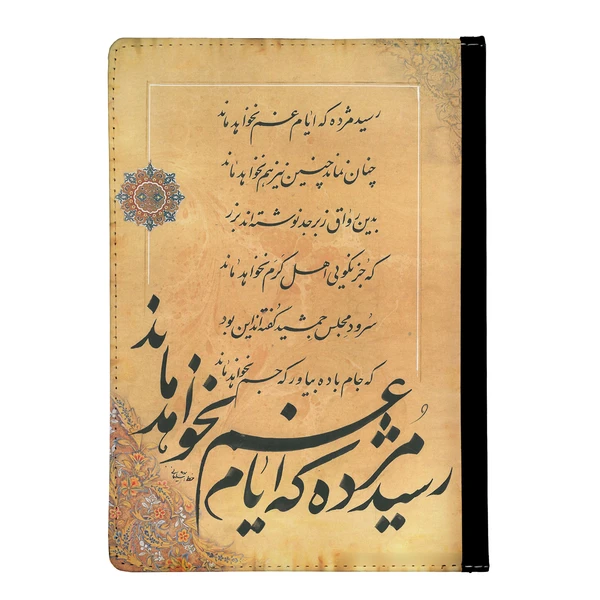 رسید مژده که ایام غم نخواهد ماند
چنان نماند چنین نیز هم نخواهد ماند
بدین رواق زبرجد نوشته‌اند بزر
که جز نکویی اهل کرم نخواهد ماند
سرود مجلس جمشید گفته‌اند این بود
که جام باده بیاور که جم نخواهد ماند
رسید مژده که ایام غم نخواهد ماند